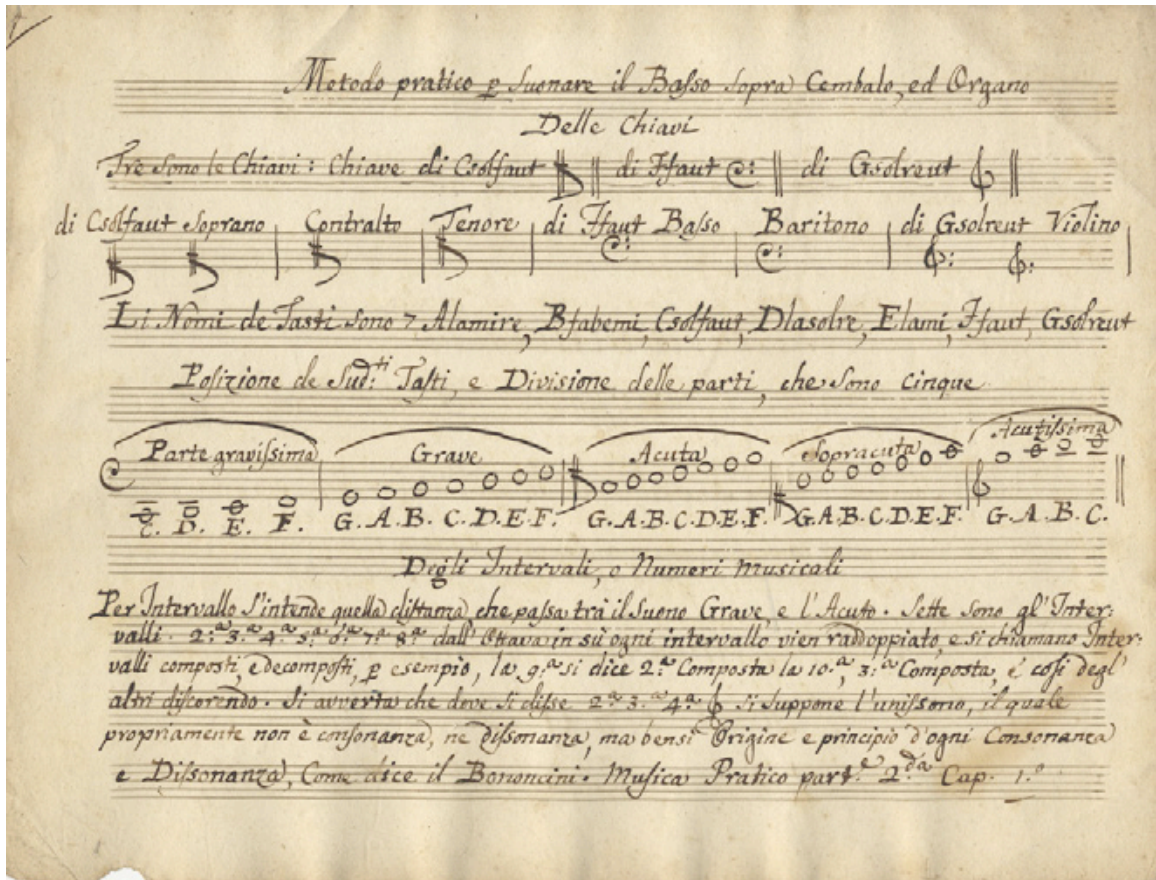 Metodo pratico p suonare il Basso sopra Cembalo, ed Organo
Delle Chiavi
Tre sono le Chiavi: Chiave di Csolfaut di Ffaut di Gsolreut
di Csolfaut Soprano Contralto Tenore di Ffaut Basso Baritono di Gsolreut Violino
Li Nomi de Tasti sono 7 Alamire, Bfabemi, Csolfaut, Dlasolre, Elami, Ffaut, Gsolreut
Posizione de Sud:ti Tasti, e Divisione delle parti, che sono cinque
Parte gravissima Grave Acuta Sopracuta Acutissima
C. D. E. F. G. A. B. C. D. E. F. G. A. B. C. D. E. F. G. A. B. C. D. E. F. G. A. B. C.
Degli Intervali, o Numeri Musicali
Per Intervallo s'intende quella distanza che passa trà il Suono Grave, e l'Acuto. Sette sono gl'Inter:
valli. 2.a 3.a 4.a 5.a 6.a 7.a 8.a dall'Ottava in sù ogni intervallo vien raddoppiato, e si chiamano Inter:
valli composti, e decomposti, p esempio, la 9.a si dice 2.a Composta la 10.a, 3.a Composta, e cosi degl'
altri discorendo. Si avverta che dove si disse 2.a 3.a 4.a & si suppone l'unissono, il quale
propriamente non è consonanza, ne dissonanza, ma bensi Origine e principio d'ogni Consonanza
e Dissonanza, Come dice il Bononcini. Musica Pratico part.e 2.da Cap. 1.o